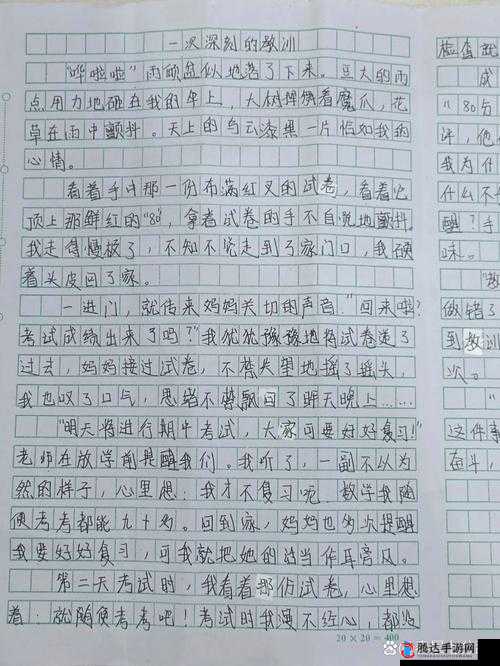 一次深刻的教训
“哗啦啦”雨倾盆似地落了下来。豆大的雨
点用力地砸在我的伞上,大树挥倘着魔爪,花
草在雨中颤抖。天上的乌云漆黑一片恰如我的
心情。
看着手中那一份布满红叉的试卷,看着它
顶上那鲜红的“80”,拿着试卷的手不自觉地颤抖。
我走得慢极了,不知不觉走到了家门口,我硬
着头皮回了家。
一进门,就传来妈妈关切的声音:“回来啦?
考试成绩出来了吗?”我犹犹豫豫地将试卷递了
过去,妈妈接过试卷,不禁失望地摇了摇头,
我也叹了口气,思绪不禁飘回了昨天晚上……
“明天将进行期中考试,大家可要好好复习!”
老师在放学前提醒我们。我听了,一副不以为
然的样子,心里想:我才不复习呢,数学我随
便考考都能九十多。回到家,妈妈也多次提醒
我要好好复习,可我就把她的话当作耳旁风。
第二天考试时,我看着那份试卷,心里想
着:就随便考考吧!考试时我漫不经心,都没
20×20=400
检查就
成
“80分
评,他
我为什
什么不
醒?手
味。
“教
做错了
到教训
次。
这件事
奋斗,
腾达手游网